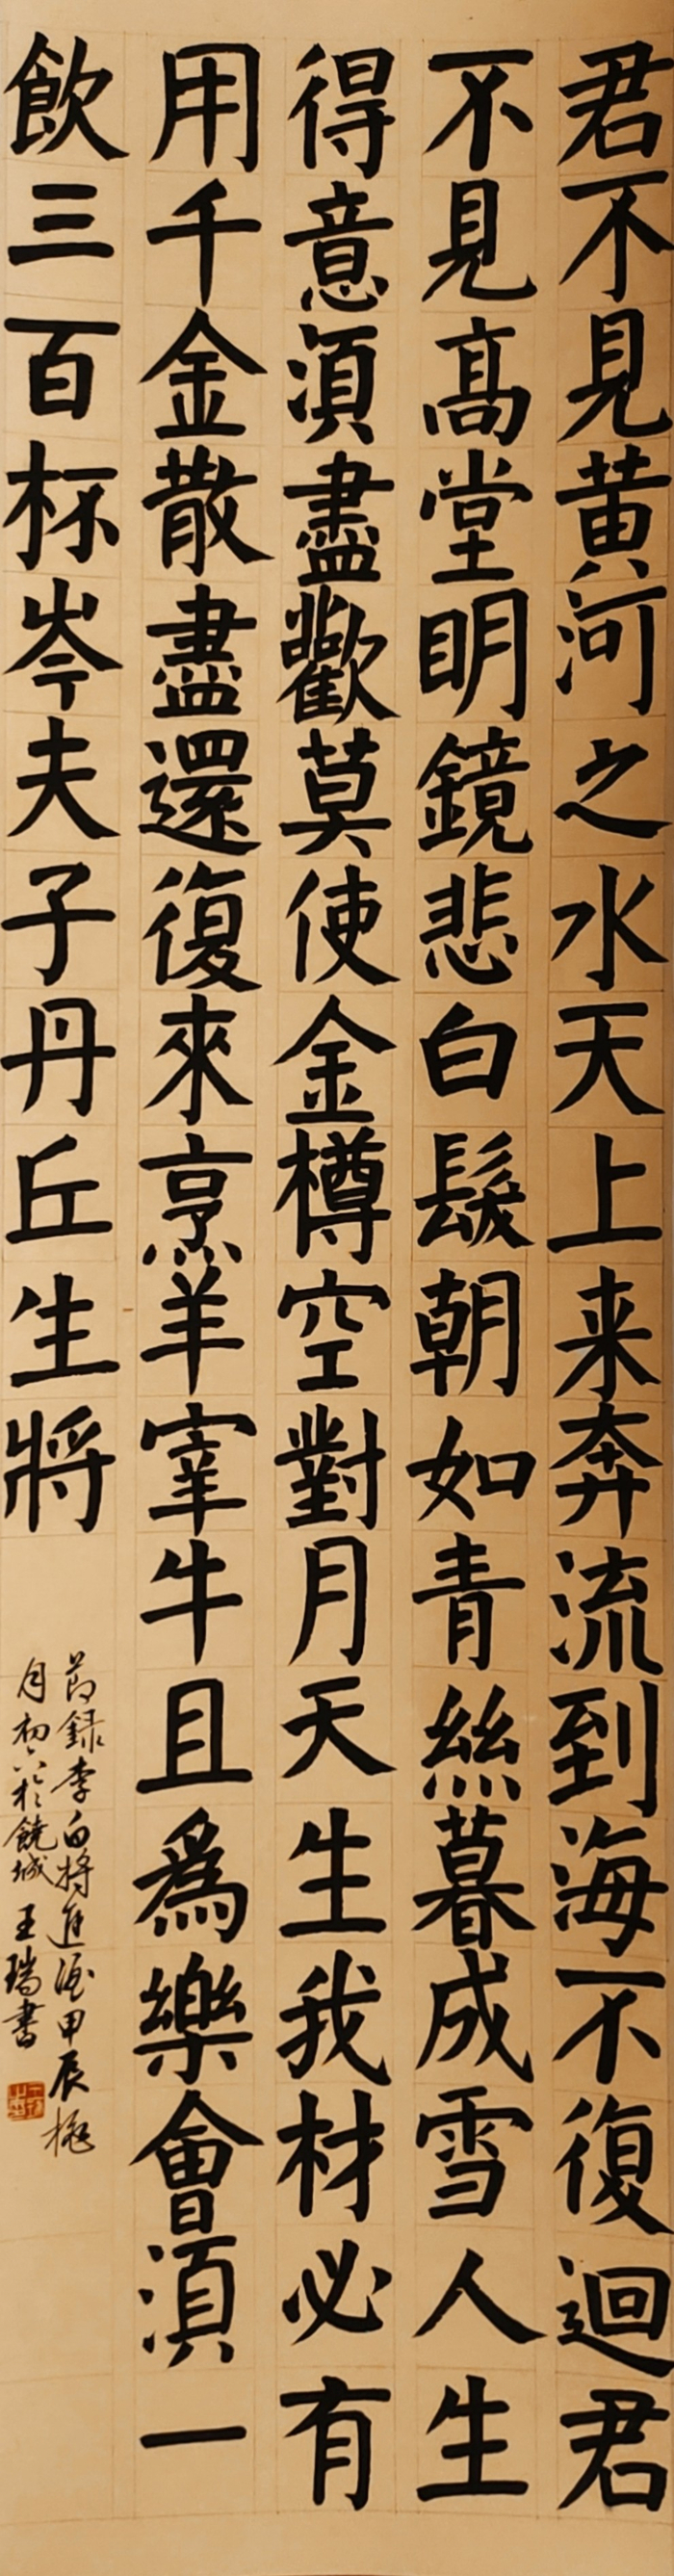 君不見黄河之水天上来奔流到海不復迴君
不見高堂明鏡悲白髮朝如青絲暮成雪人生
得意湏盡歡莫使金樽空對月天生我材必有
用千金散盡還復來烹羊宰牛且爲樂會湏一
飲三百杯岑夫子丹丘生將
節録李白將進酒甲辰桃
月初六於饒城王瑞書